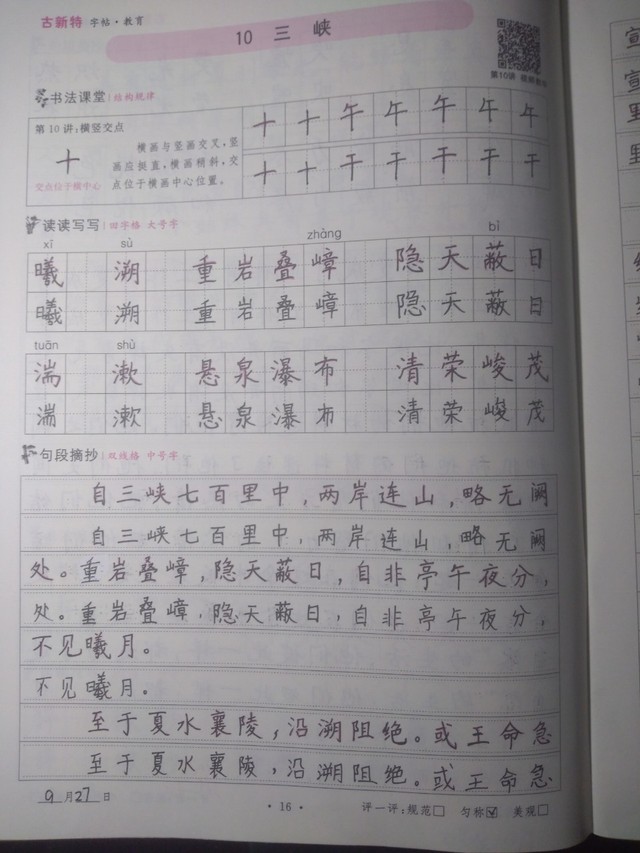 古新特 字帖·教育
10 三 峡
书法课堂 结构规律
第10讲:横竖交点
十
横画与竖画交叉,竖
画应挺直,横画稍斜,交
点位于横画中心位置。
交点位于横中心
十 十 午 午 午 午 午
十 十 干 干 干 干 干
读读写写 田字格 大号字
xī sù zhàng bì
曦 溯 重岩叠嶂 隐天蔽日
曦 溯 重岩叠嶂 隐天蔽日
tuān shù
湍 漱 悬泉瀑布 清荣峻茂
湍 漱 悬泉瀑布 清荣峻茂
句段摘抄 双线格 中号字
自三峡七百里中,两岸连山,略无阙
自三峡七百里中,两岸连山,略无阙
处。重岩叠嶂,隐天蔽日,自非亭午夜分,
处。重岩叠嶂,隐天蔽日,自非亭午夜分,
不见曦月。
不见曦月。
至于夏水襄陵,沿溯阻绝。或王命急
至于夏水襄陵,沿溯阻绝。或王命急
9月27日
·16·
评一评:规范□ 匀称☑ 美观□